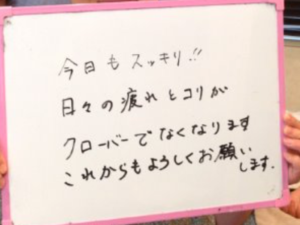 今日もスッキリ!!
日々の疲れとコリが
クローバーでなくなります
これからもよろしくお願い
します.